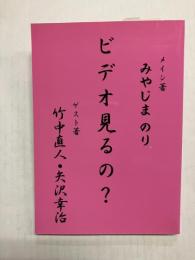 メイン著
みやじま のり
ビデオ見るの？
ゲスト著
竹中直人●矢沢幸治